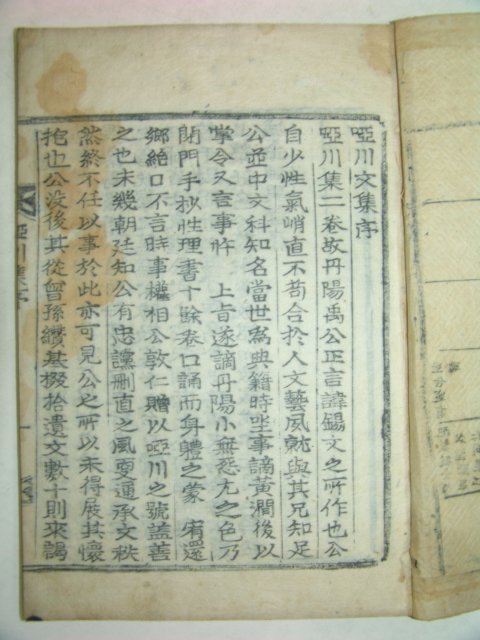 啞川文集序
啞川集二卷故丹陽禹公正言諱錫文之所作也公
自少性氣峭直不苟合於人文藝夙就與其兄知足
公並中文科知名當世爲典籍時坐事謫黃澗後以
掌令又言事忤 上旨遂謫丹陽小無怨尤之色乃
閉門手抄性理書十餘卷口誦而身體之蒙 宥還
鄉絶口不言時事權相公敦仁贈以啞川之號益善
之也末幾朝廷知公有忠讜剛直之風亟通承文秩
然終不任以事於此亦可見公之所以未得展其懷
抱也公没後其從曾孫纘基掇拾遺文數十則來謁
啞川集序
一